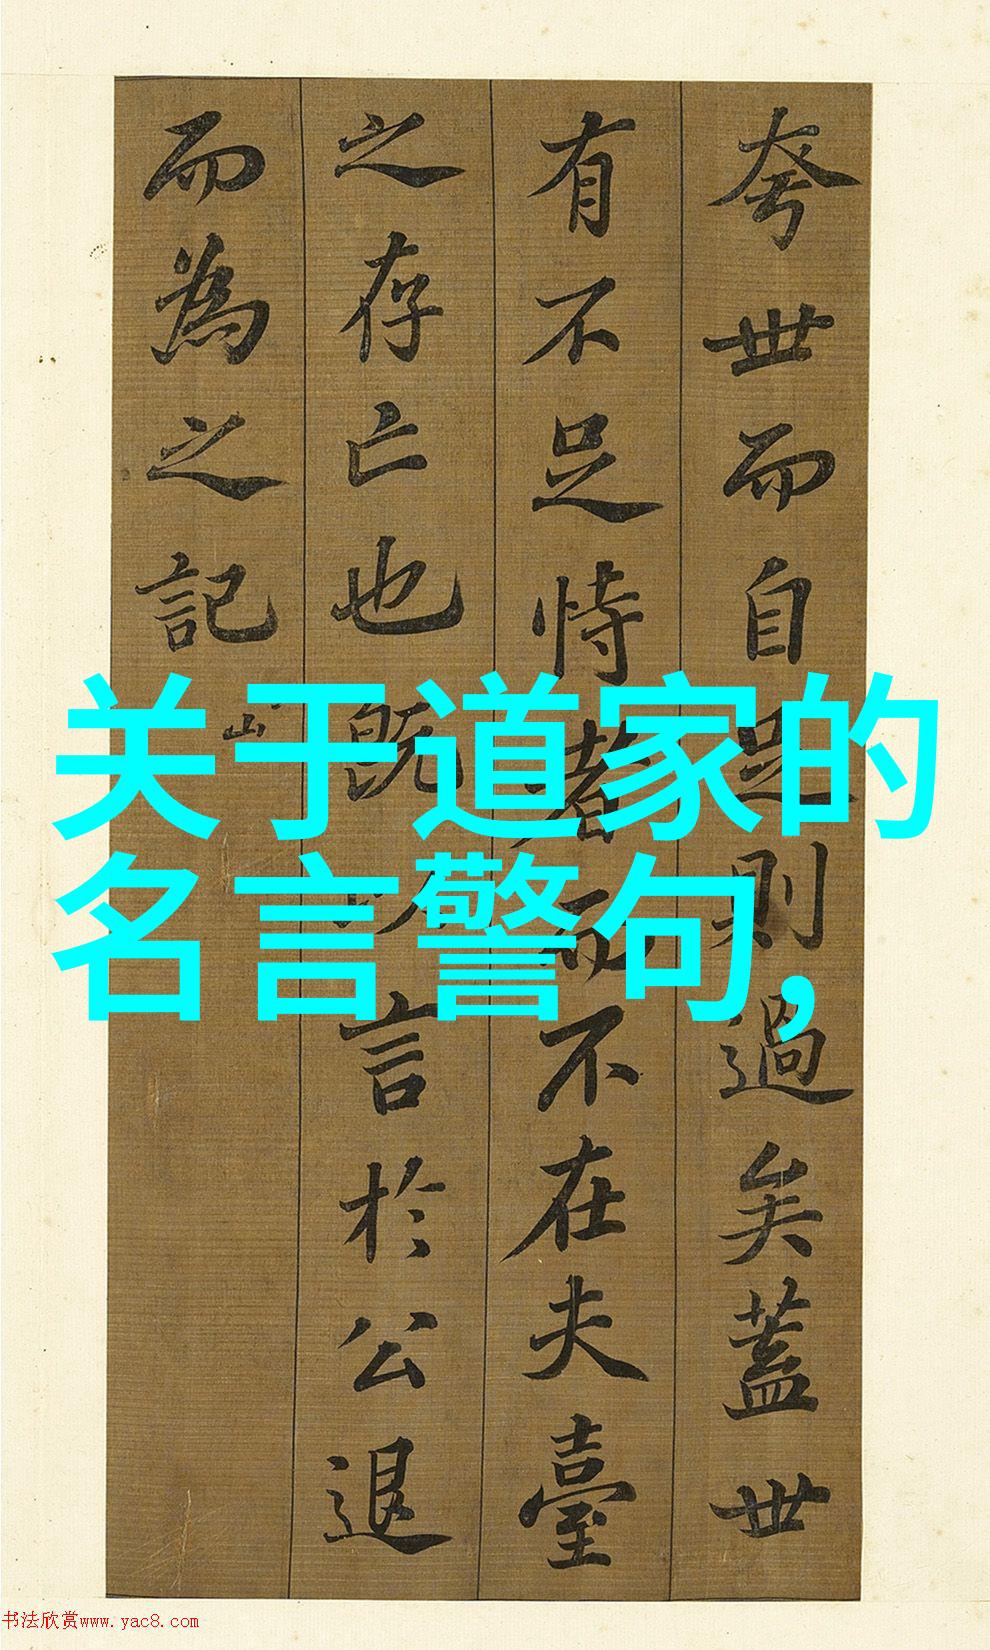 夸世而自足則過矣蓋世
有不足恃者而不在夫臺
之存亡也既以言於公退
而為之記
关于道家的
名言警句,
书法欣赏www.yac8.com